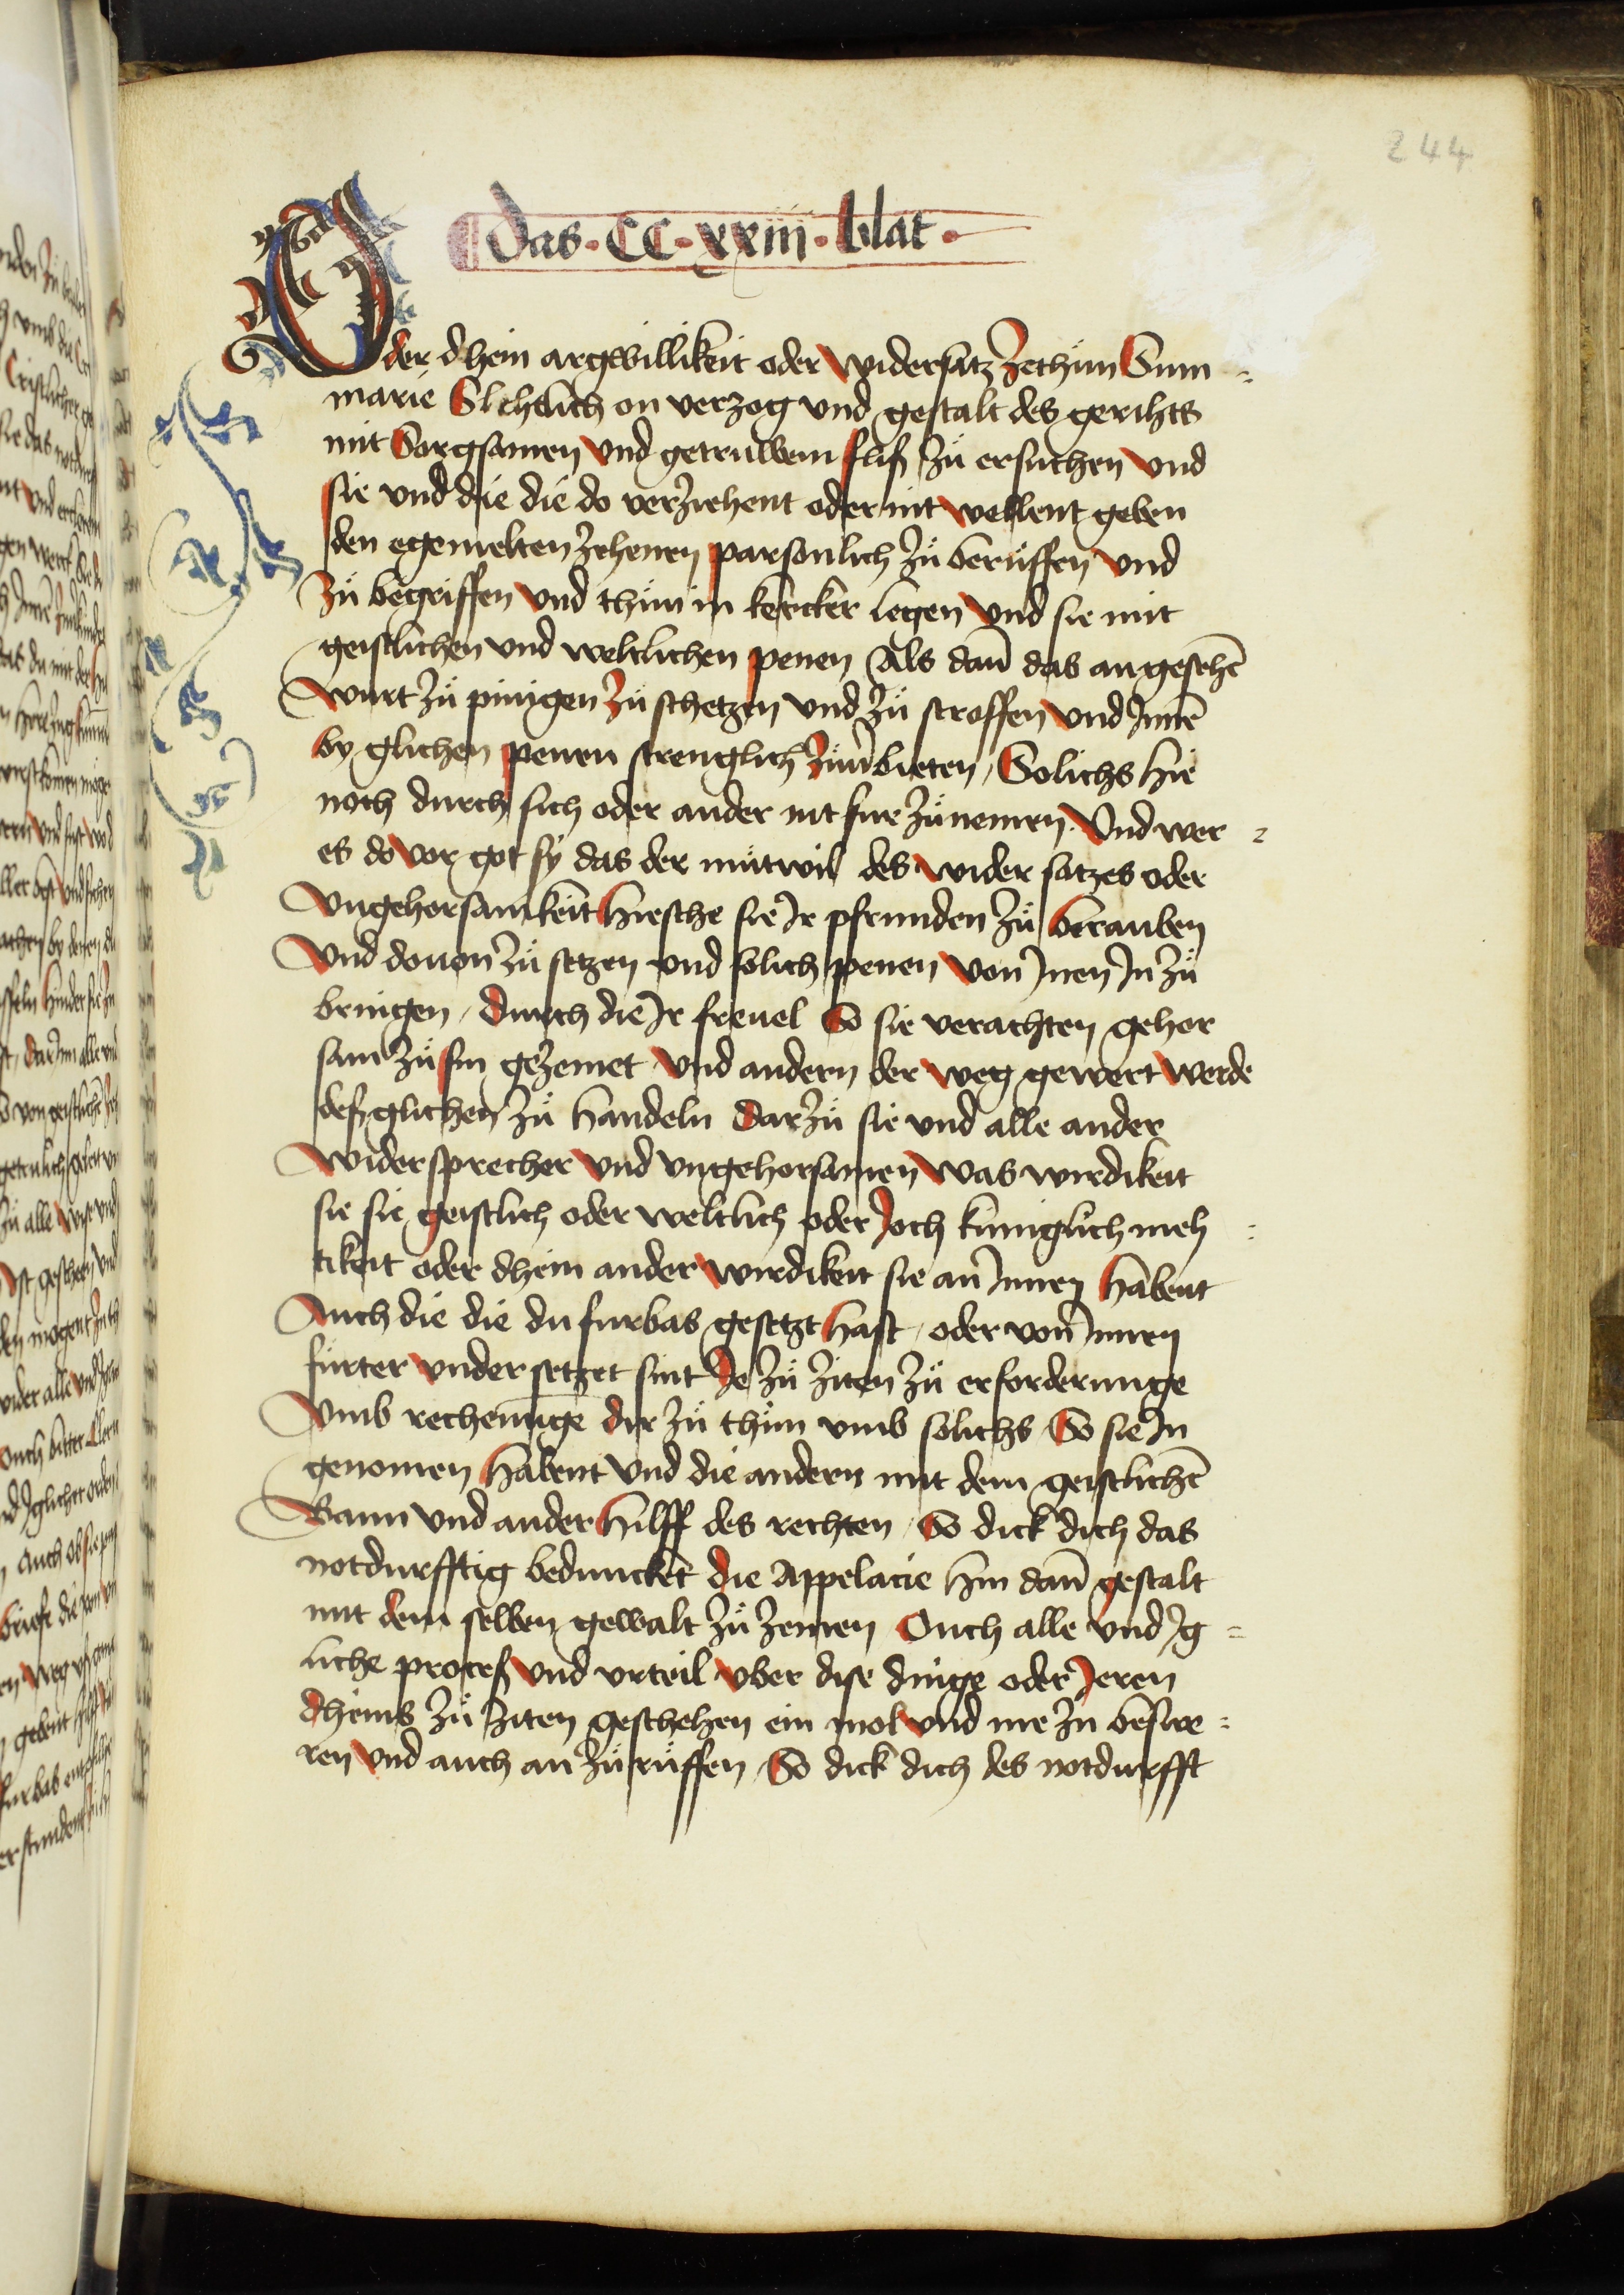 244
das · CC · xxiii · blat ·
Oder dhein argwillikeit oder widersatz zethün Sum=
marie Slehtlich on verzog vnd gestalt des gerihts
mit Sorgsamen vnd getruwem fliß zü ersuchen vnd
sie vnd die die do verziehent oder nit wellent geben
den egemelten zehenen parsonlich zü beruffen vnd
zü begriffen vnd thün in kercker legen vnd sie mit
geistlichen vnd weltlichen penen Als dan̄ das angesehē
wurt zü pinigen zü schetzen vnd zü stroffen vnd Innē
by glichen penen strenglich zü bieten, Solichs hie
noch durch sich oder ander nit fur zü nemen. Vnd wer=
es do vor got sy das der mütwil des wider satzes oder
vngehorsamkeit hiesche sie Ir pfrunden zü berauben
vnd douon zü setzen vnd solich penen von Inen In zü
bringen, durch die Ir freuel So sie verachten gehor
sam zü sin gezemet vnd andern der weg gewert werde
deßglichen zü handeln Darzü sie vnd alle ander
widersprecher vnd vngehorsamen was wirdikeit
sie sie geistlich oder weltlich oder Joch kuniglich meh=
tikeit oder dhein ander wirdikeit sie an Innen habent
Auch die die du furbas gesetzt hast, oder von Innen
fürter vnder setzet sint Je zü ziten zü erforderunge
vmb rechenunge dir zü thün vmb solichs So sie In
genomen habent vnd die andern mit dem geistlichē
Bann vnd ander hilff des rechten, So dick dich das
notdurfftig beduncket die Appelacie hin dan̄ gestalt
mit dem selben gewalt zü zemen Ouch alle vnd Ig=
liche proceß vnd vrteil vber dise dinge oder Jeren
dheins zü ziten geschehen ein mol vnd me zü beswe=
ren vnd auch an zü rüffen, So dick dich des notdurfft